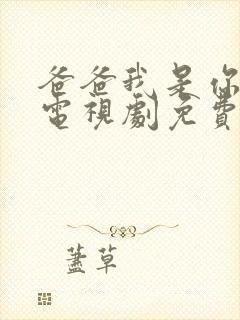 爸爸我是你
電視劇免費
蓋草